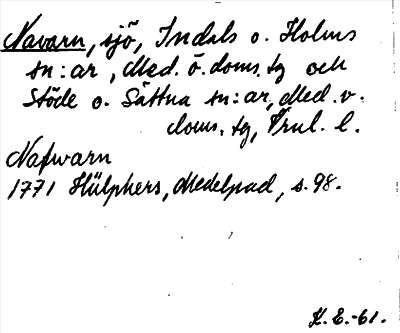 Navarn, sjö, Indals o. Holms
sn:ar, Med. ö. doms. tg och
Stöde o. Sättna sn:ar, Med. v.
doms. tg, Vnrl. l.
Nafwarn
1771 Hülphers, Medelpad, s. 98.
K. E. -61.